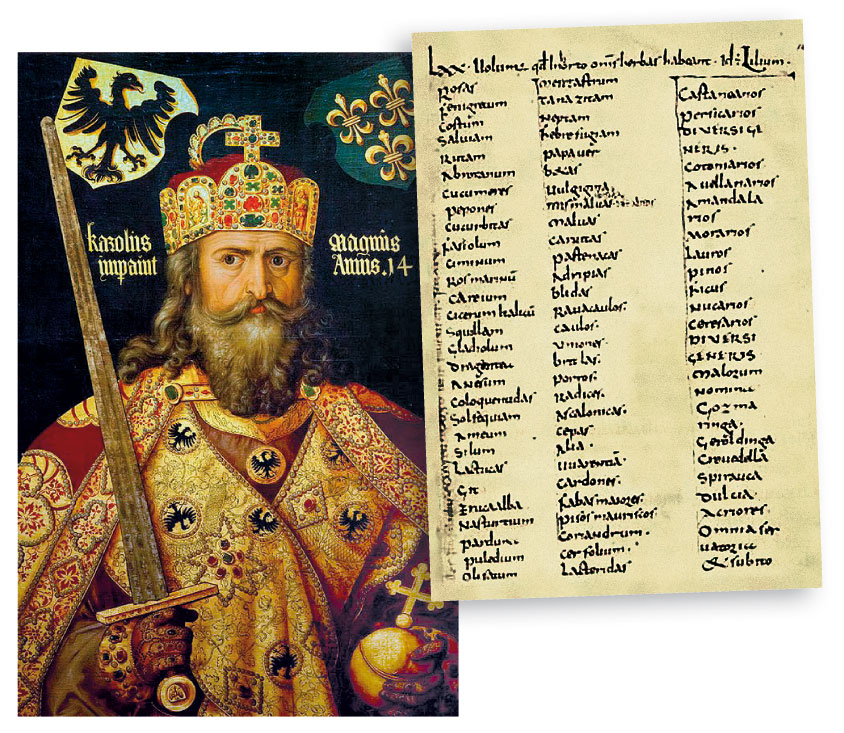 karolus
imp̄avit
Magnus
Annis.14
Lxx. Uolum; qđ in horto om̄s herbas habeant. Idē Lilium.
Rosas
Fenigrecum
Costum
Saluiam
Rutam
Abrotanum
Cucumeres
Pepones
Cucurbitas
Fasiolum
Ciminum
Rosmarinū
Careium
Cicerum italicū
Squillam
Gladiolum
Dragontea
Anesum
Coloquentidas
Solsequiam
Ameum
Silum
Lactucas
Git
Eruca alba
Nasturtium
Parduna
Puledium
Olisatum
Mentastrum
Tanazitam
Neptam
Febrefugiam
Papauer
Betas
Uulgigina
Malvas
Caruitas
Pastenacas
Adripias
blidas
Ravacaulos.
Caulos.
Uniones.
britlas.
Porros.
Radices.
Ascalonicas.
Cepas
Alia.
Uuarentiā.
Cardones.
Fabas maiores.
Pisos mauriscos
Coriandrum.
Cerfolium.
Lacteridas
Castanearios
Persicarios
DIVERSI GE
NERIS.
Cotoniarios
Avellanarios
Amandala
rios
Morarios
Lauros
Pinos
Ficus
Nucarios
Ceresarios
DIVERSI
GENERIS
Malorum
Nomina
Gozma
ringa.
Geroldinga
Crevedella
Spirauca
Dulcia.
Acriores.
Omnia ser
uatoria
& subito